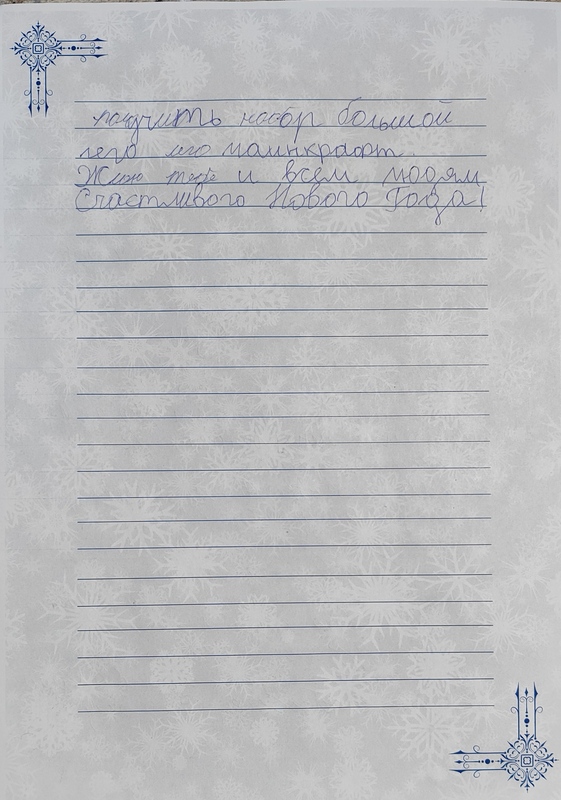 получить набор большой
лего лего маинкрафт.
Желаю тебе и всем людям
Счастливого Нового Года!